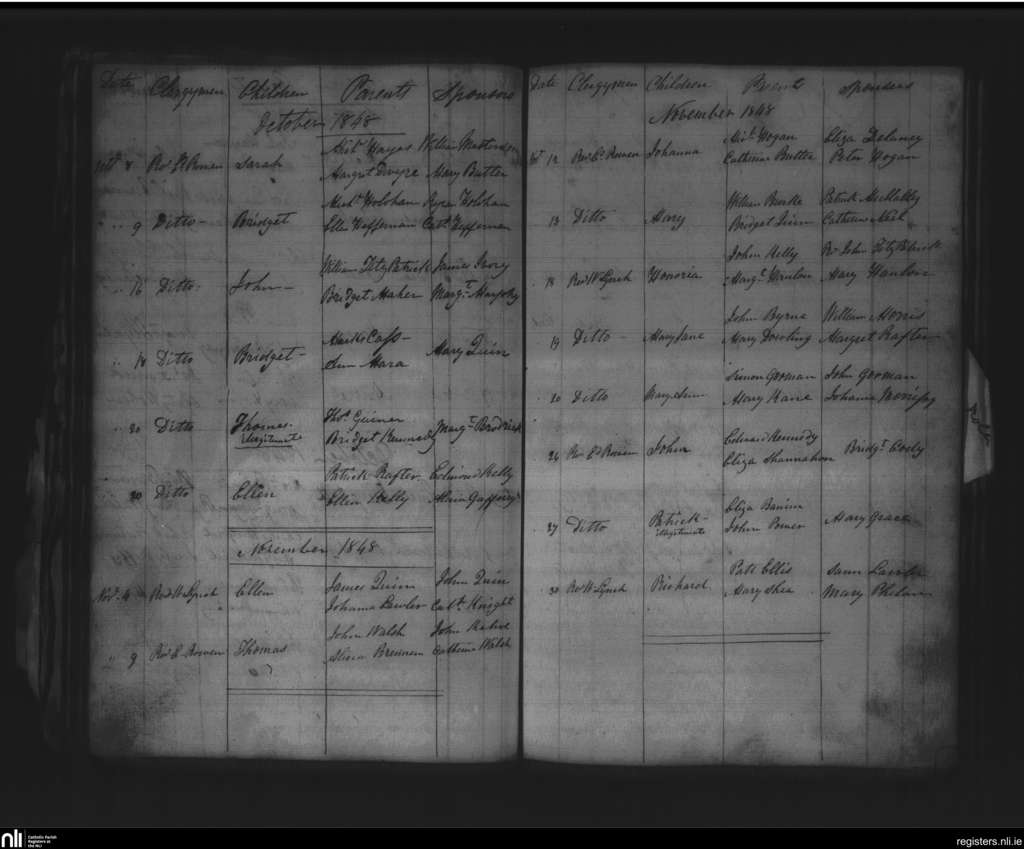 Date Clergymen Children Parents Sponsors
October 1848
Michl. Hayes William Masterson
Octr. 8 Revd. Rowen Sarah
Margret Dwyre Mary Butler
Michl. Holohan
9 Ditto Bridget
Ellen Heffernan Cath. Heffernan
William FitzPatrick James Ivory
16 Ditto John
Bridget Maher Margt.
Cass
18 Ditto Bridget Mary Quin
Ann Mara
Thos.
20 Ditto Thomas Margt. Brodrick
Illegitimate Bridget Kennedy
Patrick Rafter Edmond Kelly
20 Ditto Ellen
Ellen Kelly
November 1848
James Quinn John Quin
Novr. 4 Revd. W. Lynch Ellen
Johanna Lawler Cath. Knight
John Walsh John
9 Revd. Rowen Thomas
Alicia Brennan Catherine Walsh
Date Clergymen Children Parents Sponsors
November 1848
Michl. Hogan Eliza Delaney
12 Revd. Ed. Rowen Johanna
Catherine Butler Peter Hogan
William Bourke Patrick
13 Ditto Mary
Bridget Quinn Catherine
John Kelly Rev. John FitzPatrick
18 Revd. W. Lynch Honoria
Margt. Hanlon Mary Hanlon
John Byrne William Morris
19 Ditto Mary Jane
Mary Dowling Margret Rafter
Simon Gorman John Gorman
20 Ditto Mary Anne
Mary Kane Johanna
Edward Kennedy
26 Rev. Ed. Rowen John Bridgt.
Eliza Shannahon
Eliza
27 Ditto Patrick Mary Grace
illegitimate John Power
Patt Ellis Lawler
30 Revd. W. Lynch Richard
Mary Shea Mary Phelan
nli
Catholic Parish
Registers at
the NLI
registers.nli.ie